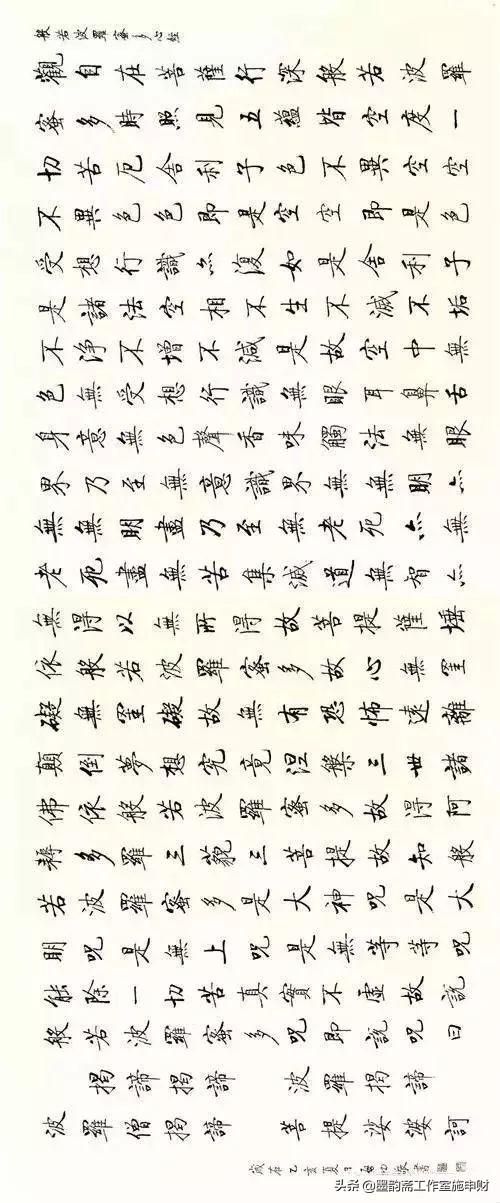 般若波羅蜜多心經
觀自在菩薩行深般若波羅
蜜多時照見五蘊皆空度一
切苦厄舍利子色不異空空
不異色色即是空空即是色
受想行識亦復如是舍利子
是諸法空相不生不滅不垢
不淨不增不減是故空中無
色無受想行識無眼耳鼻舌
身意無色聲香味觸法無眼
界乃至無意識界無無明亦
無無明盡乃至無老死亦無
老死盡無苦集滅道無智亦
無得以無所得故菩提薩埵
依般若波羅蜜多故心無罣
礙無罣礙故無有恐怖遠離
顛倒夢想究竟涅槃三世諸
佛依般若波羅蜜多故得阿
耨多羅三藐三菩提故知般
若波羅蜜多是大神呪是大
明呪是無上呪是無等等呪
能除一切苦真實不虛故說
般若波羅蜜多呪即說呪曰
揭諦揭諦 波羅揭諦
波羅僧揭諦 菩提娑婆訶
歲在乙亥夏日啟功敬書
头条 @墨韵斋工作室施申财